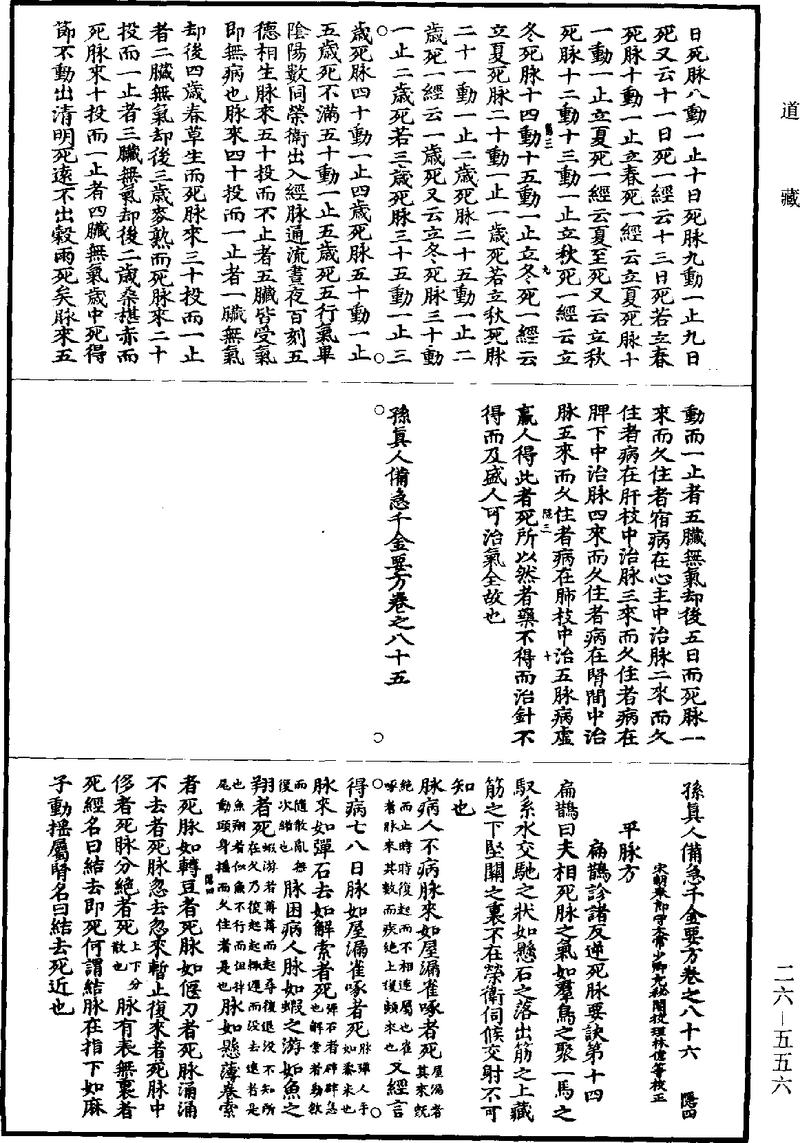 道藏
日死脉八動一止十日死脉九動一止九日
死又云十一日死一經云十三日死若立春
死脉十動一止立春死一經云立夏死脉十
一動一止立夏死一經云夏至死又云立秋
死脉十二動十三動一止立秋死一經云立
冬死脉十四動十五動一止立冬死一經云
立夏死脉二十動一止一歲死若立秋死脉
二十一動一止二歲死脉二十五動一止二
歲死一經云一歲死又云立冬死脉三十動
一止二歲死若三歲死脉三十五動一止三
歲死脉四十動一止四歲死脉五十動一止
五歲死不滿五十動一止五歲死五行氣畢
陰陽數同榮衛出入經脉通流晝夜百刻五
德相生脉來五十投而不止者五臟皆受氣
即無病也脉來四十投而一止者一臟無氣
却後四歲春草生而死脉來三十投而一止
者二臟無氣却後三歲麥熟而死脉來二十
投而一止者三臟無氣却後二歲桑椹赤而
死脉來十投而一止者四臟無氣歲中死得
節不動出清明死遠不出穀雨死矣脉來五
動而一止者五臟無氣却後五日而死脉一
來而久住者宿病在心主中治脉二來而久
住者病在肝枝中治脉三來而久住者病在
脾下中治脉四來而久住者病在腎間中治
脉五來而久住者病在肺枝中治五脉病虛
羸人得此者死所以然者藥不得而治針不
得而及盛人可治氣全故也
孫真人備急千金要方卷之八十五
孫真人備急千金要方卷之八十六 隱四
宋朝奉郎守太常少卿充秘閣校理林億等校正
平脉方
扁鵲診諸反逆死脉要訣第十四
扁鵲曰夫相死脉之氣如羣鳥之聚一馬之
馭系水交馳之狀如懸石之落出筋之上藏
筋之下堅關之裏不在榮衛伺候交射不可
知也
脉病人不病脉來如屋漏雀啄者死屋漏者其來既
絕而止時時復起而不相連屬也雀
啄者脉來甚數而疾絕止復頓來也又經言
得病七八日脉如屋漏雀啄者死脉彈人手如黍米也
脉來如彈石去如解索者死彈石者辟辟急也解索者動數
而隨散亂無復次緒也脉困病人脉如蝦之游如魚之
翔者死蝦游者苒苒而起尋復退没不知所在久乃復起起輒遲而没去速者是
也魚翔者似魚不行而但掉尾動頭身搖而久住者是也脉如懸薄卷索
者死脉如轉豆者死脉如偃刀者死脉涌涌
不去者死脉忽去忽來暫止復來者死脉中
侈者死脉分絕者死上下分散也脉有表無裏者
死經名曰結去即死何謂結脉在指下如麻
子動搖屬腎名曰結去死近也
二六—五五六